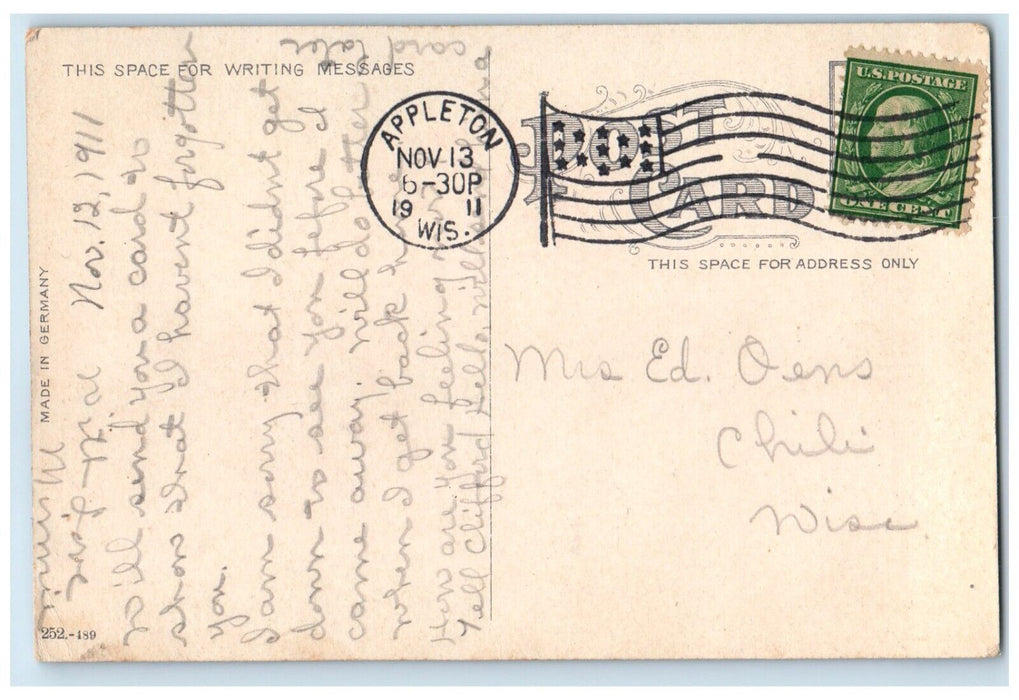 THIS SPACE FOR WRITING MESSAGES
MADE IN GERMANY
252.-189
Nov. 12, 1911
I'll send you a card to
show that I havent forgotten
you.
I am sorry that I didnt get
down to see you before I
came away, will do better
when I get back
How are you feeling
Tell Clifford hello, will send
card later
APPLETON
NOV 13
6-30P
19 11
WIS.
POST
CARD
U.S. POSTAGE
ONE CENT
THIS SPACE FOR ADDRESS ONLY
Mrs Ed. Oens
Chili
Wisc